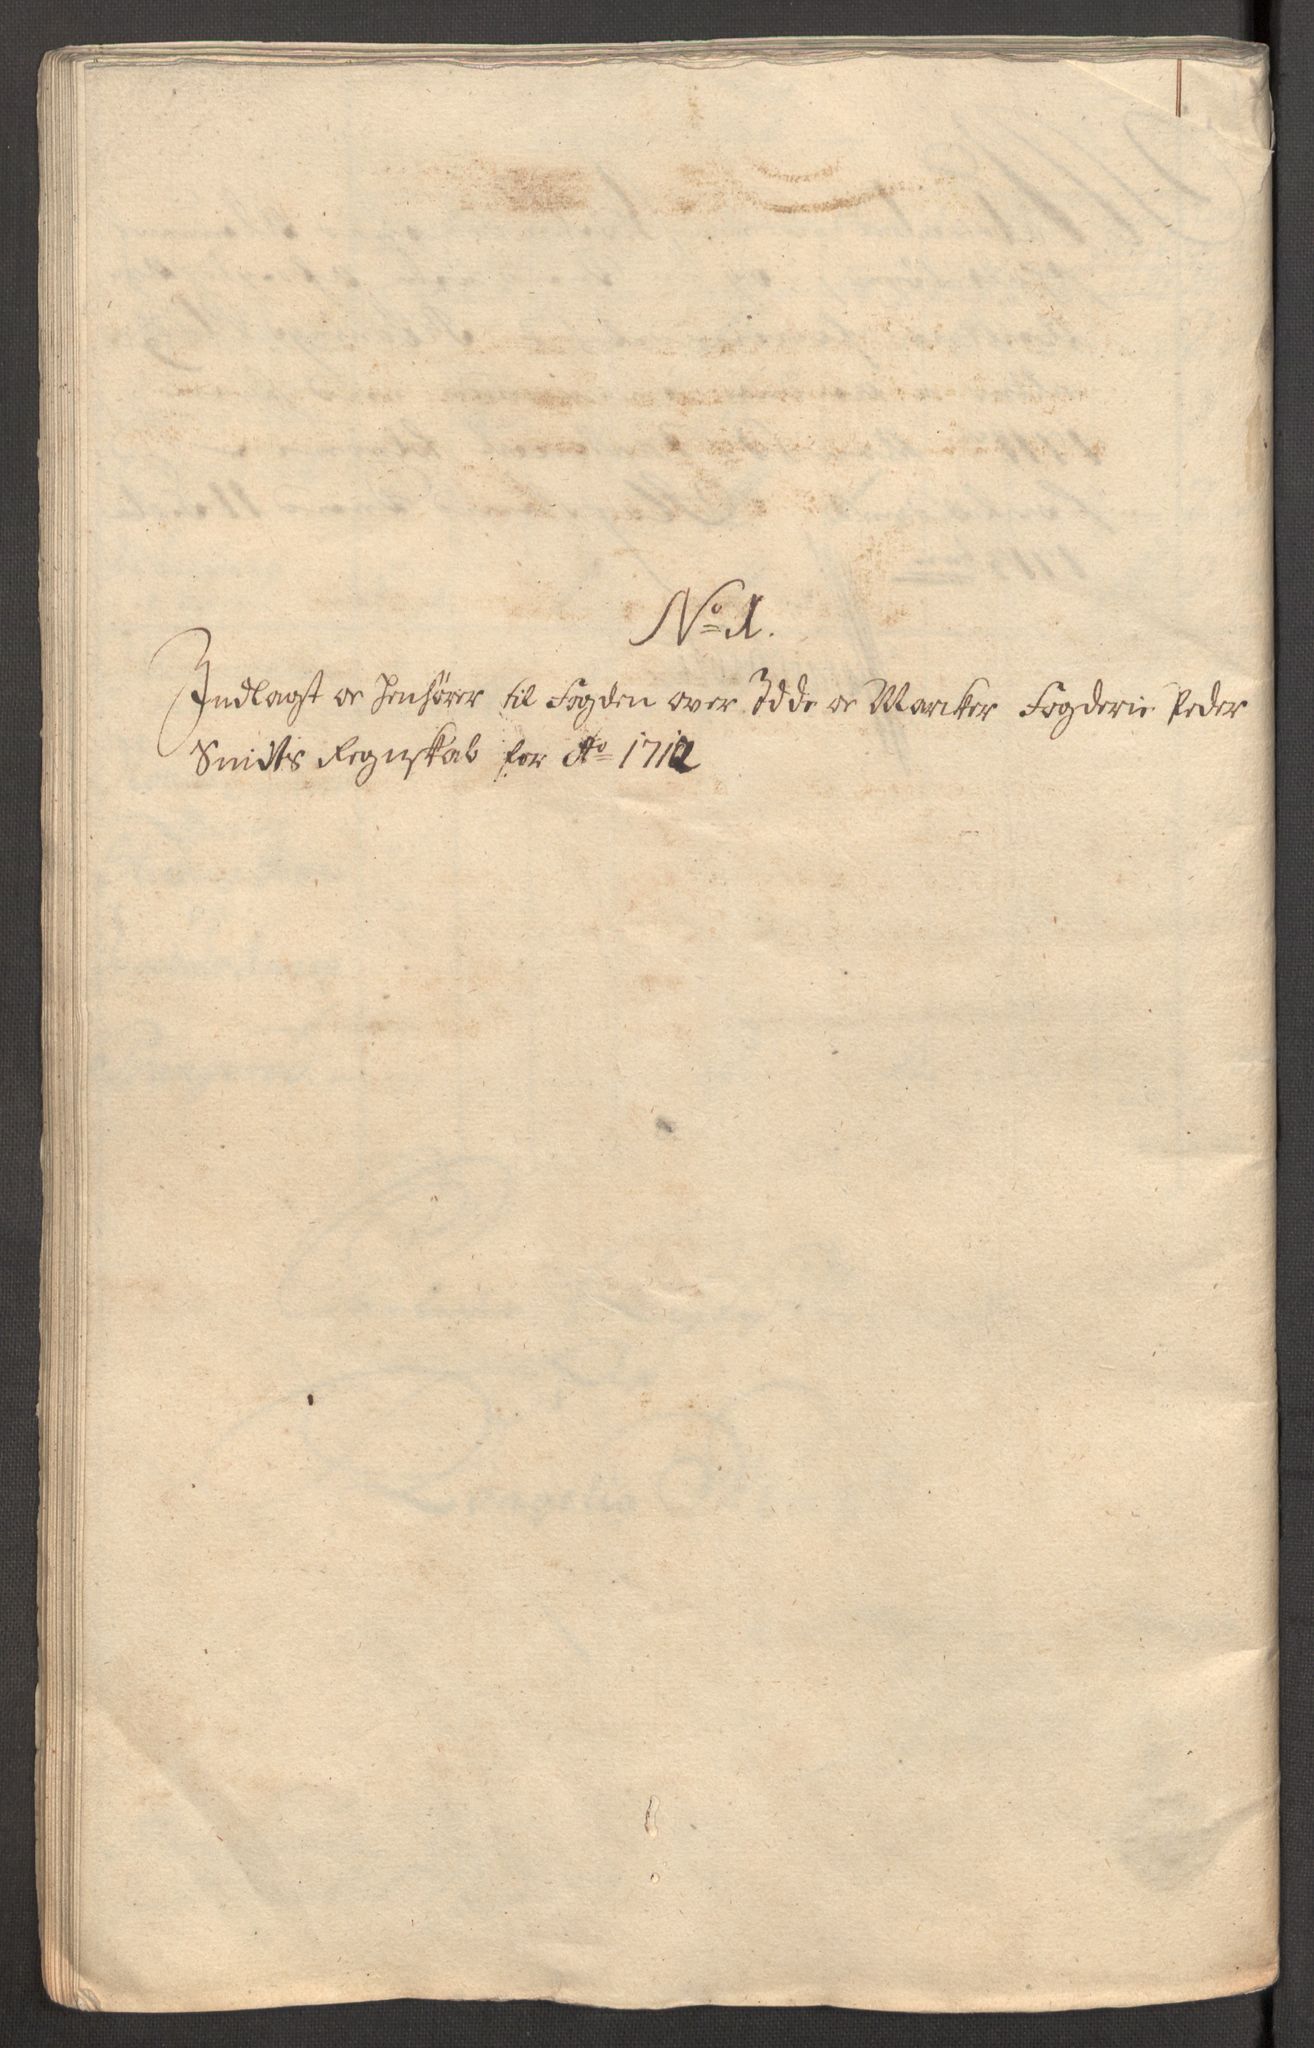 No 1.
Indlagt oc henhører til Fogden over Idde oc Marcker Fogderie Peder
Smidts Regnskab for Ao 1712